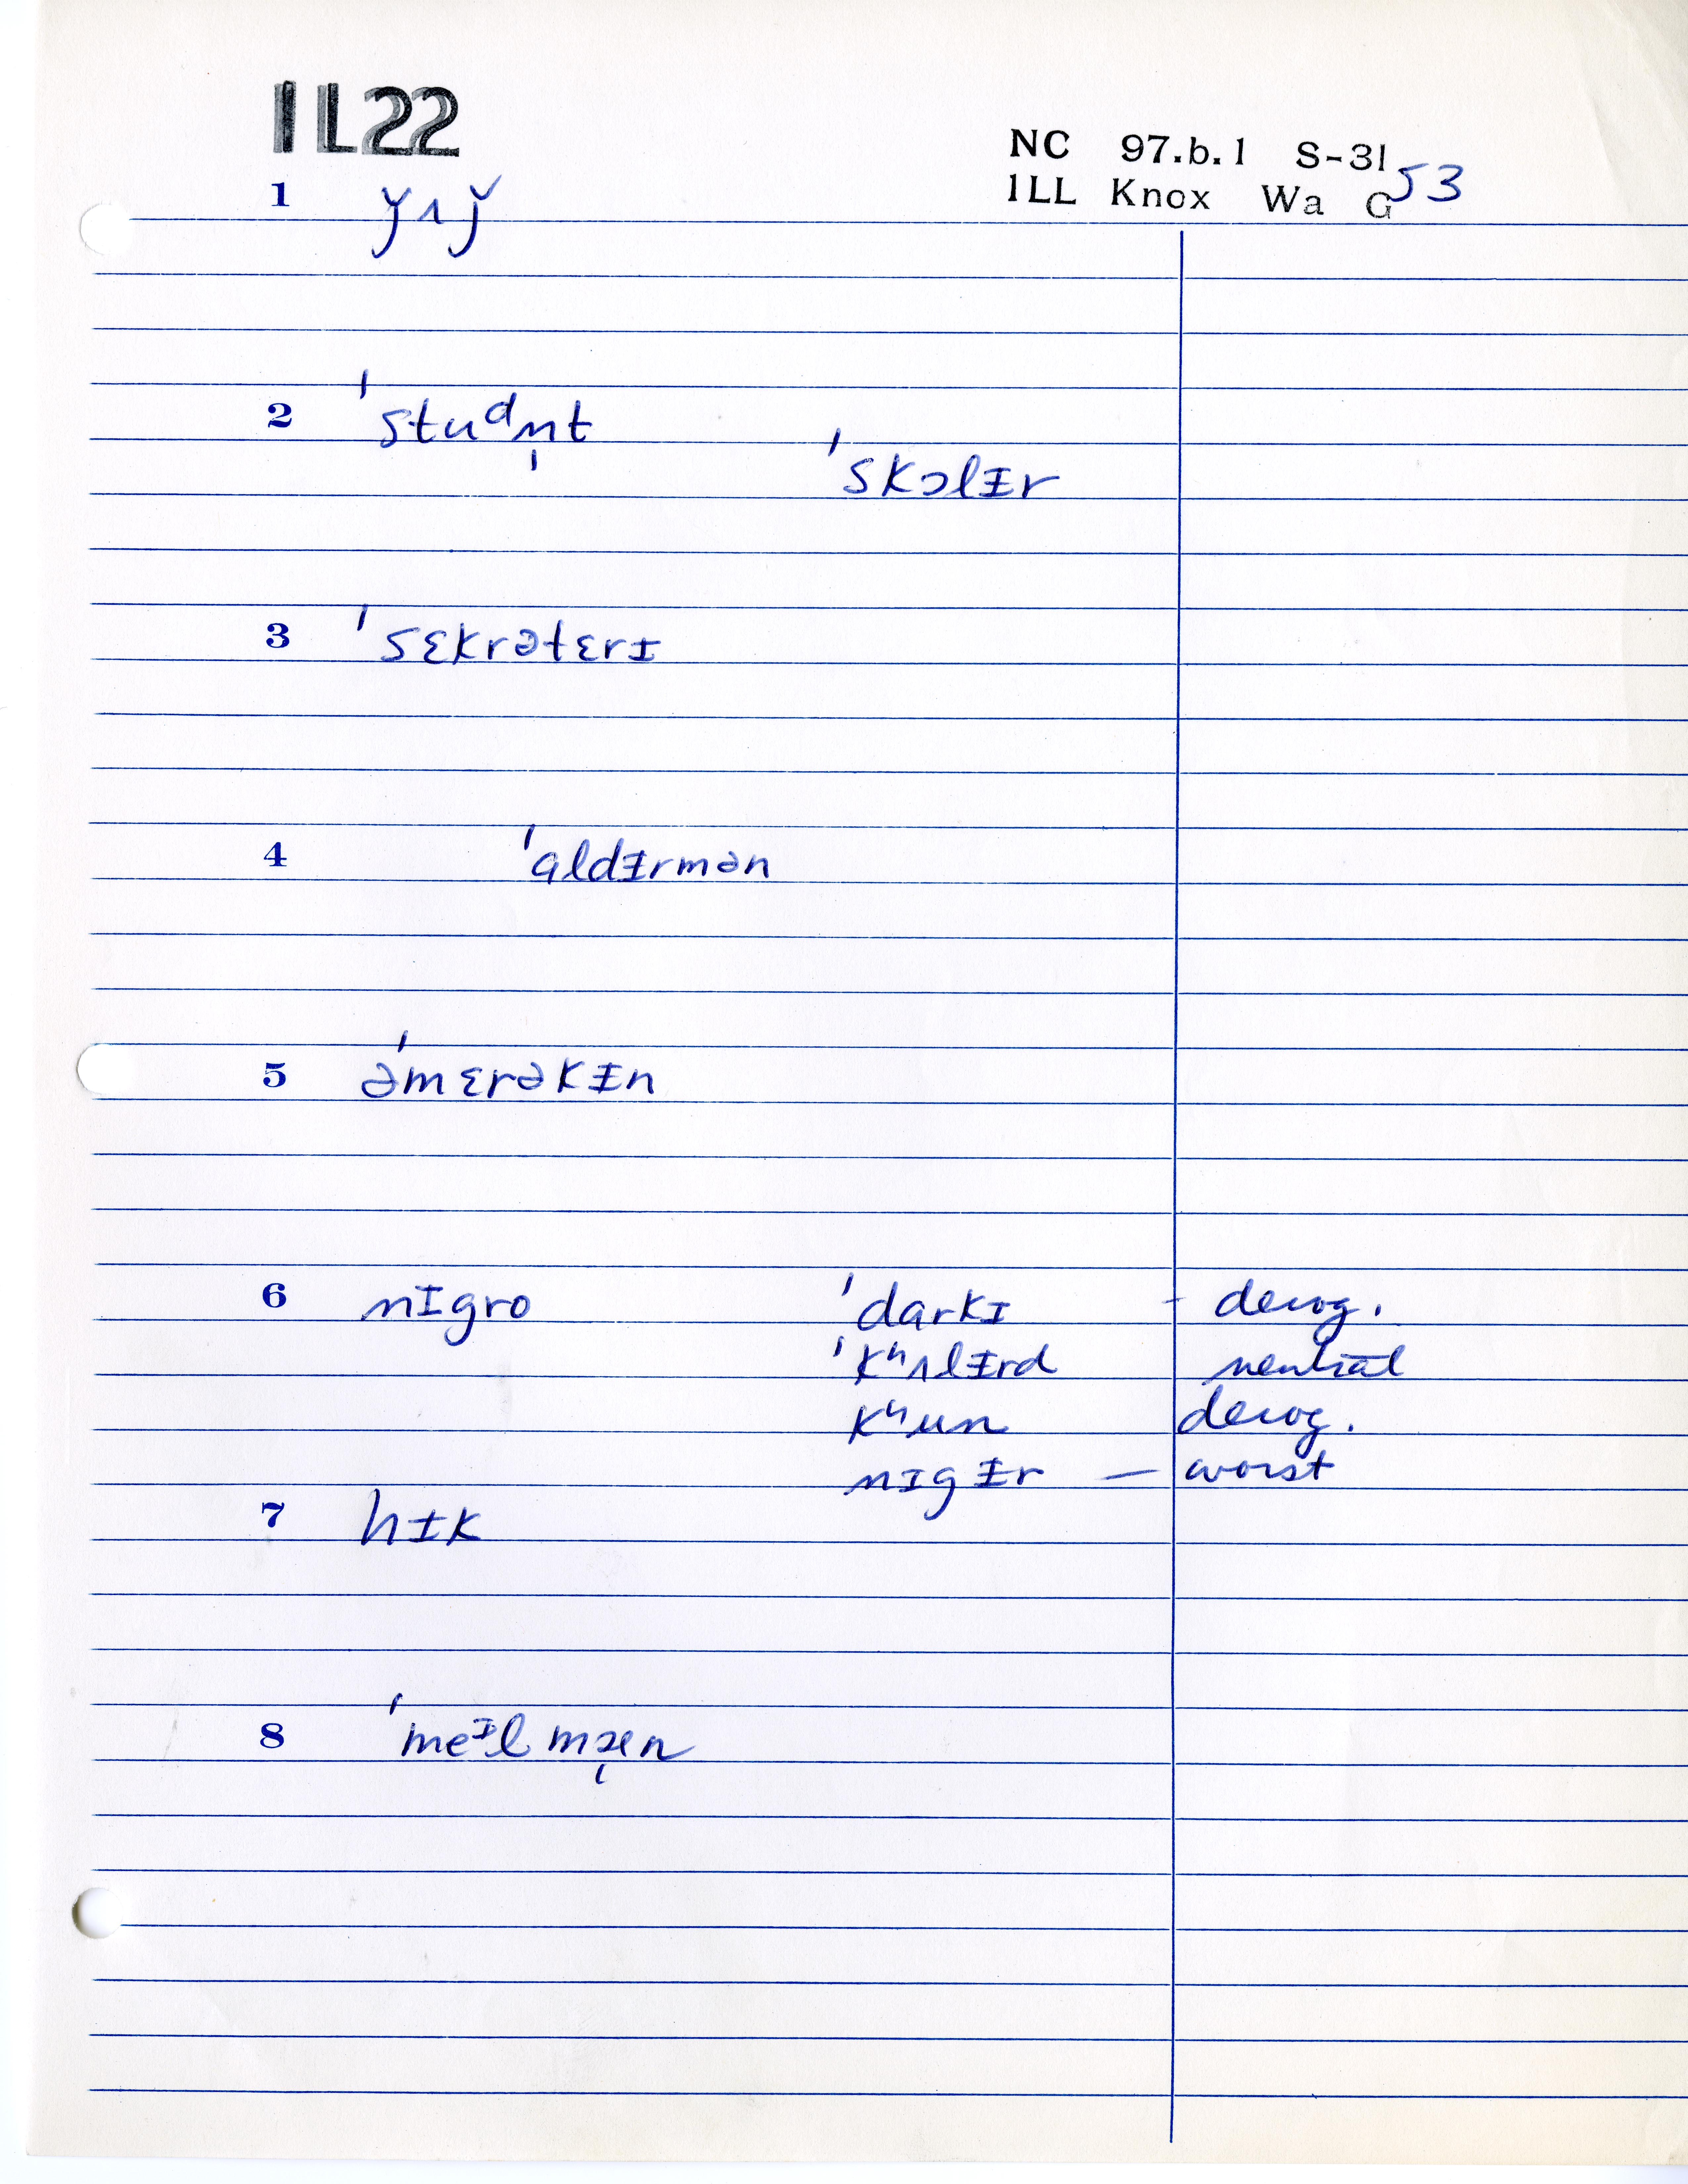 IL22
NC 97.b.1 S-31 53
ILL Knox Wa G
1 ǰʌǰ
2 ˈstuᵈn̩t
ˈskɔlɨr
3 ˈsɛkrətɛrɪ
4 ˈɑldɨrmən
5 əˈmɛrəkɨn
6 nɪgro ˈdarkɪ - derog.
ˈkʰʌlɨrd neutral
kʰun derog.
nɪgɨr — worst
7 hɨk
8 ˈmeᶤl mæ̩n